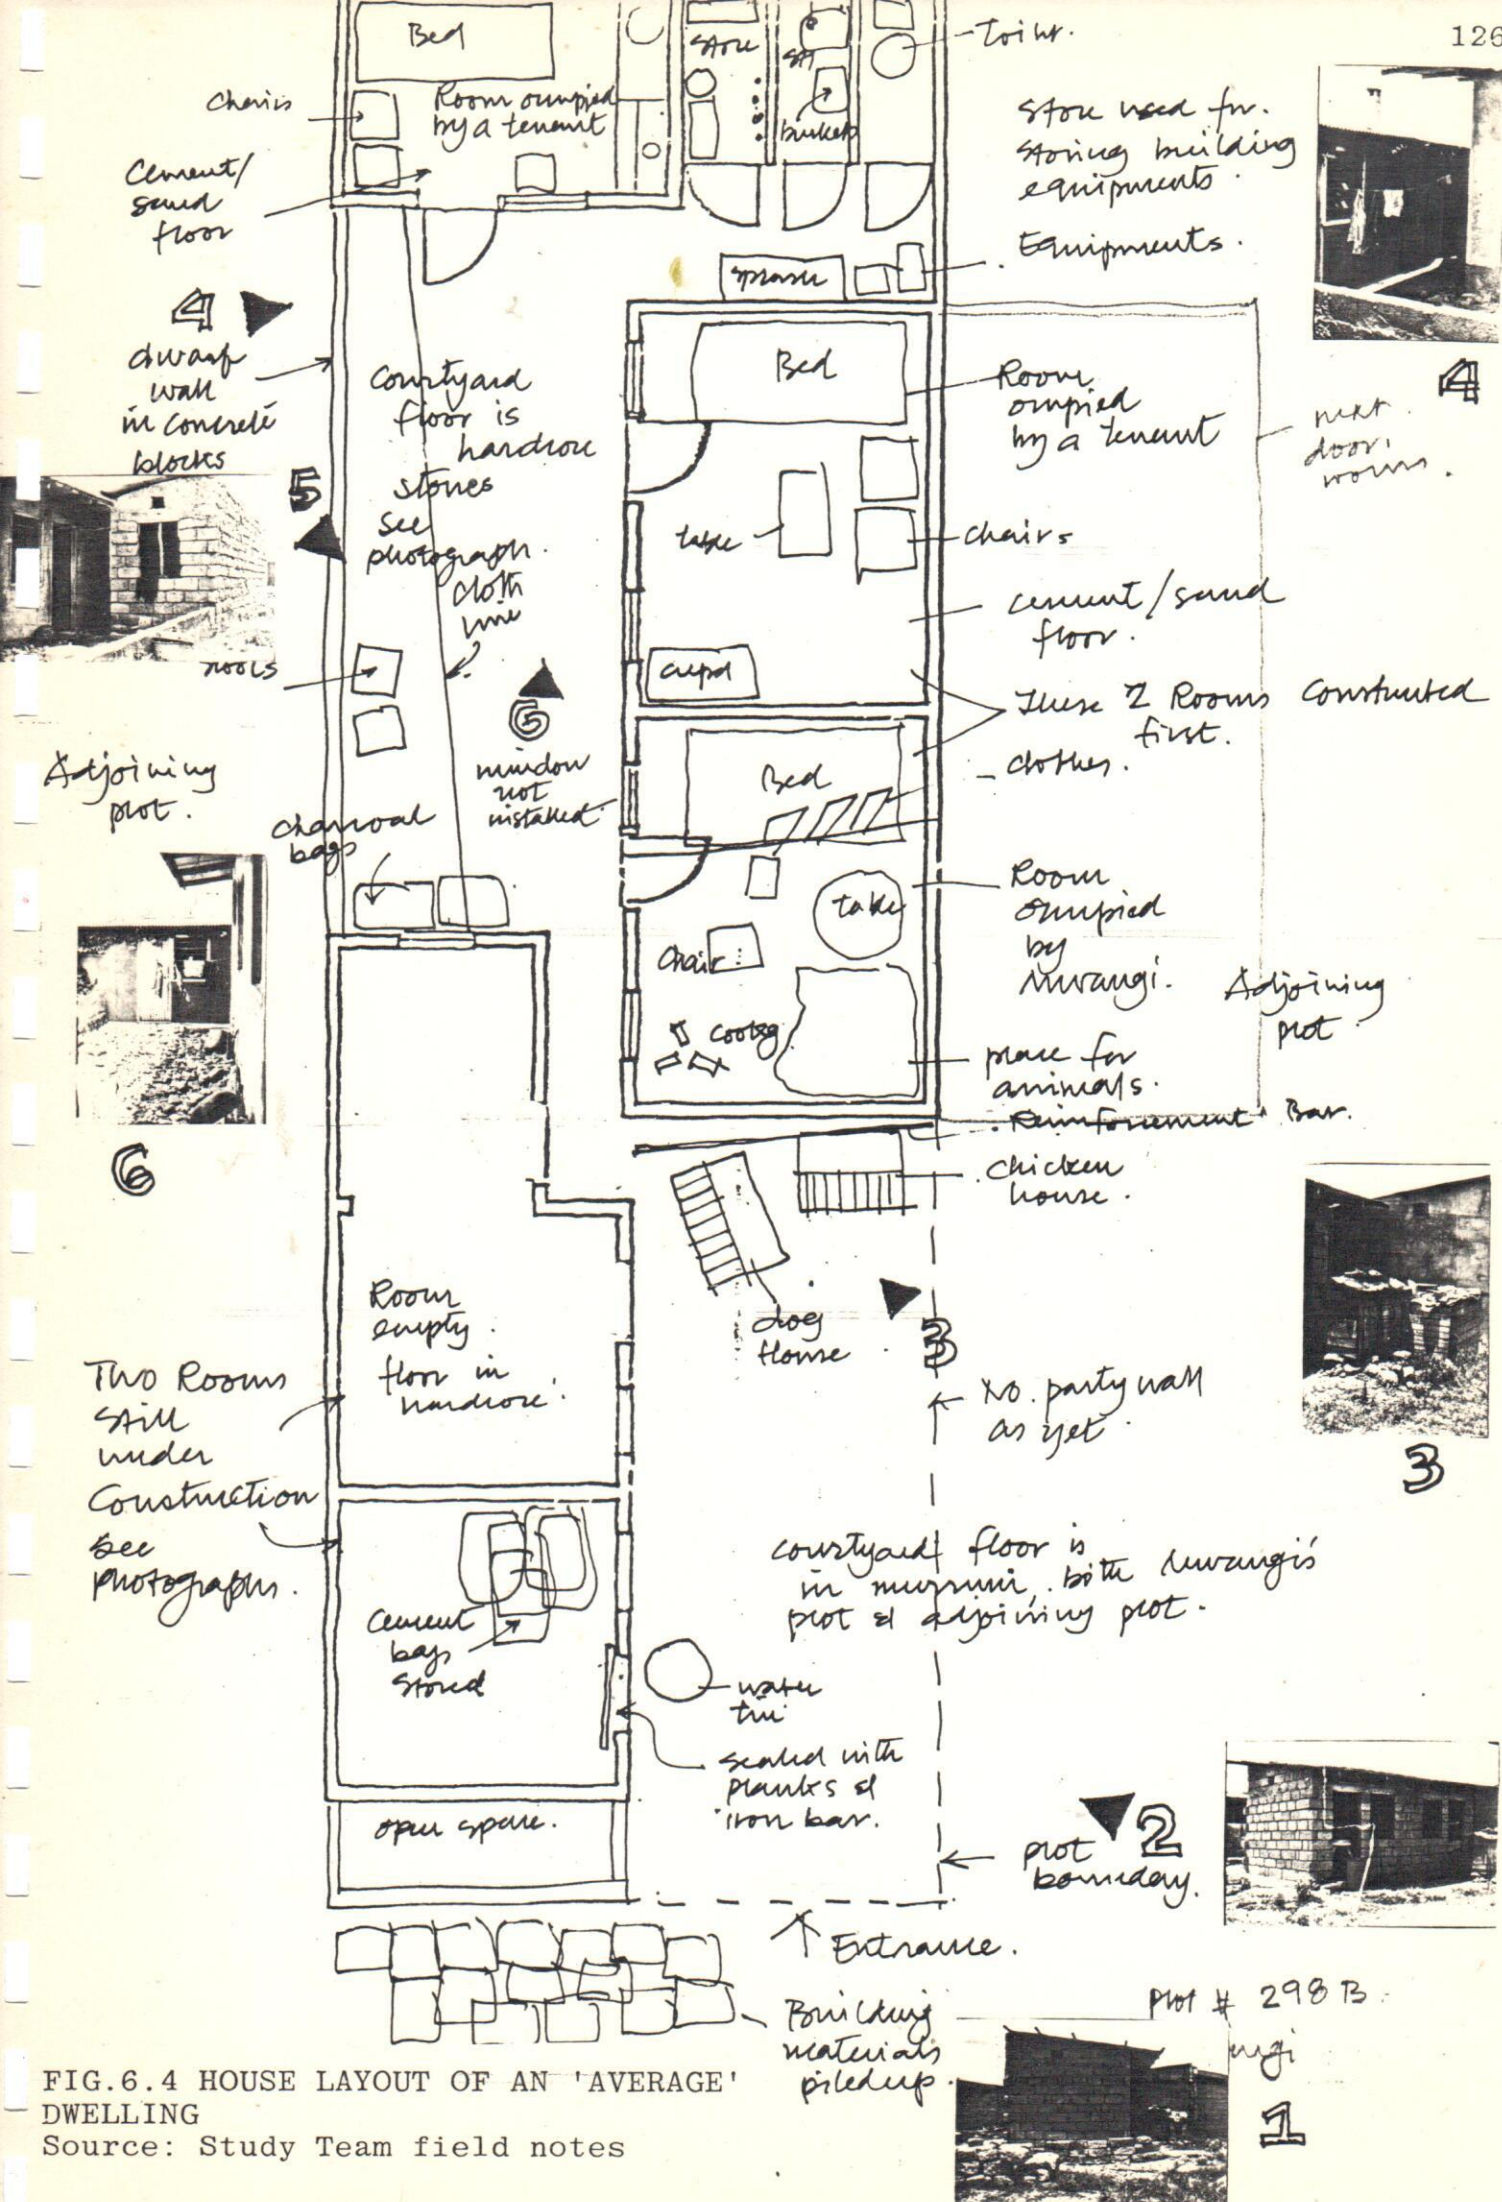 126
Bed
Store
SH
Toilet.
Chairs
Room occupied
by a tenant
buckets
Store used for.
storing building
equipments.
Cement/
sand
floor
Equipments.
4
dwarf
wall
in concrete
blocks
Courtyard
floor is
hardcore
stones
see
photograph.
cloth
line
Bed
Room
occupied
by a tenant
4
next
door
rooms.
5
table
chairs
cement/sand
floor.
stools
cupd
These 2 Rooms Constructed
first.
6
window
not
installed.
Bed
clothes.
Adjoining
plot.
Charcoal
bags
table
Chair
Room
occupied
by
Mwangi.
Adjoining
plot
cookg
place for
animals.
Reinforcement Bar.
6
chicken
house.
dog
House
3
Room
empty.
floor in
hardcore.
Two Rooms
still
under
Construction
see
photographs.
No. party wall
as yet
3
courtyard floor is
in murrum, both Mwangi's
plot & adjoining plot.
Cement
bags
stored
water
tin
sealed with
planks &
iron bar.
open space.
plot
boundary.
2
Entrance.
Plot # 298B
ngi
Building
materials
piled up.
1
FIG.6.4 HOUSE LAYOUT OF AN 'AVERAGE'
DWELLING
Source: Study Team field notes